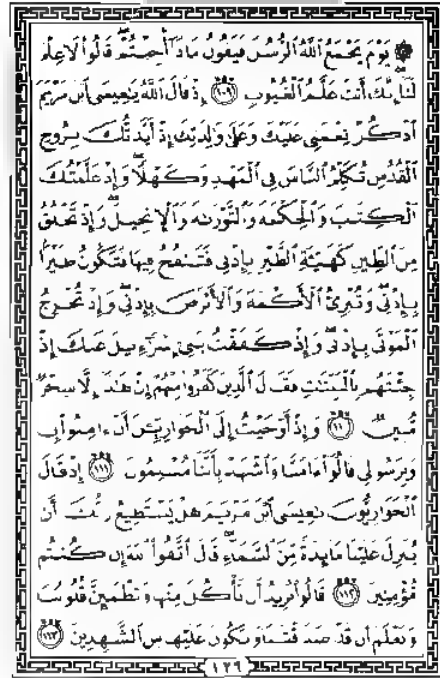 ۞ يَوْمَ يَجْمَعُ ٱللَّهُ ٱلرُّسُلَ فَيَقُولُ مَاذَآ أُجِبْتُمْ ۖ قَالُوا۟ لَا عِلْمَ
لَنَآ ۖ إِنَّكَ أَنتَ عَلَّـٰمُ ٱلْغُيُوبِ ١٠٩ إِذْ قَالَ ٱللَّهُ يَـٰعِيسَى ٱبْنَ مَرْيَمَ
ٱذْكُرْ نِعْمَتِى عَلَيْكَ وَعَلَىٰ وَٰلِدَتِكَ إِذْ أَيَّدتُّكَ بِرُوحِ
ٱلْقُدُسِ تُكَلِّمُ ٱلنَّاسَ فِى ٱلْمَهْدِ وَكَهْلًا ۖ وَإِذْ عَلَّمْتُكَ
ٱلْكِتَـٰبَ وَٱلْحِكْمَةَ وَٱلتَّوْرَىٰةَ وَٱلْإِنجِيلَ ۖ وَإِذْ تَخْلُقُ
مِنَ ٱلطِّينِ كَهَيْـَٔةِ ٱلطَّيْرِ بِإِذْنِى فَتَنفُخُ فِيهَا فَتَكُونُ طَيْرًۢا
بِإِذْنِى ۖ وَتُبْرِئُ ٱلْأَكْمَهَ وَٱلْأَبْرَصَ بِإِذْنِى ۖ وَإِذْ تُخْرِجُ
ٱلْمَوْتَىٰ بِإِذْنِى ۖ وَإِذْ كَفَفْتُ بَنِىٓ إِسْرَٰٓءِيلَ عَنكَ إِذْ
جِئْتَهُم بِٱلْبَيِّنَـٰتِ فَقَالَ ٱلَّذِينَ كَفَرُوا۟ مِنْهُمْ إِنْ هَـٰذَآ إِلَّا سِحْرٌ
مُّبِينٌ ١١٠ وَإِذْ أَوْحَيْتُ إِلَى ٱلْحَوَارِيِّـۧنَ أَنْ ءَامِنُوا۟ بِى
وَبِرَسُولِى قَالُوٓا۟ ءَامَنَّا وَٱشْهَدْ بِأَنَّنَا مُسْلِمُونَ ١١١ إِذْ قَالَ
ٱلْحَوَارِيُّونَ يَـٰعِيسَى ٱبْنَ مَرْيَمَ هَلْ يَسْتَطِيعُ رَبُّكَ أَن
يُنَزِّلَ عَلَيْنَا مَآئِدَةً مِّنَ ٱلسَّمَآءِ ۖ قَالَ ٱتَّقُوا۟ ٱللَّهَ إِن كُنتُم
مُّؤْمِنِينَ ١١٢ قَالُوا۟ نُرِيدُ أَن نَّأْكُلَ مِنْهَا وَتَطْمَئِنَّ قُلُوبُنَا
وَنَعْلَمَ أَن قَدْ صَدَقْتَنَا وَنَكُونَ عَلَيْهَا مِنَ ٱلشَّـٰهِدِينَ ١١٣
١٢٩